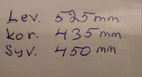 Lev. 525 mm
Kor. 435 mm
Syv. 450 mm